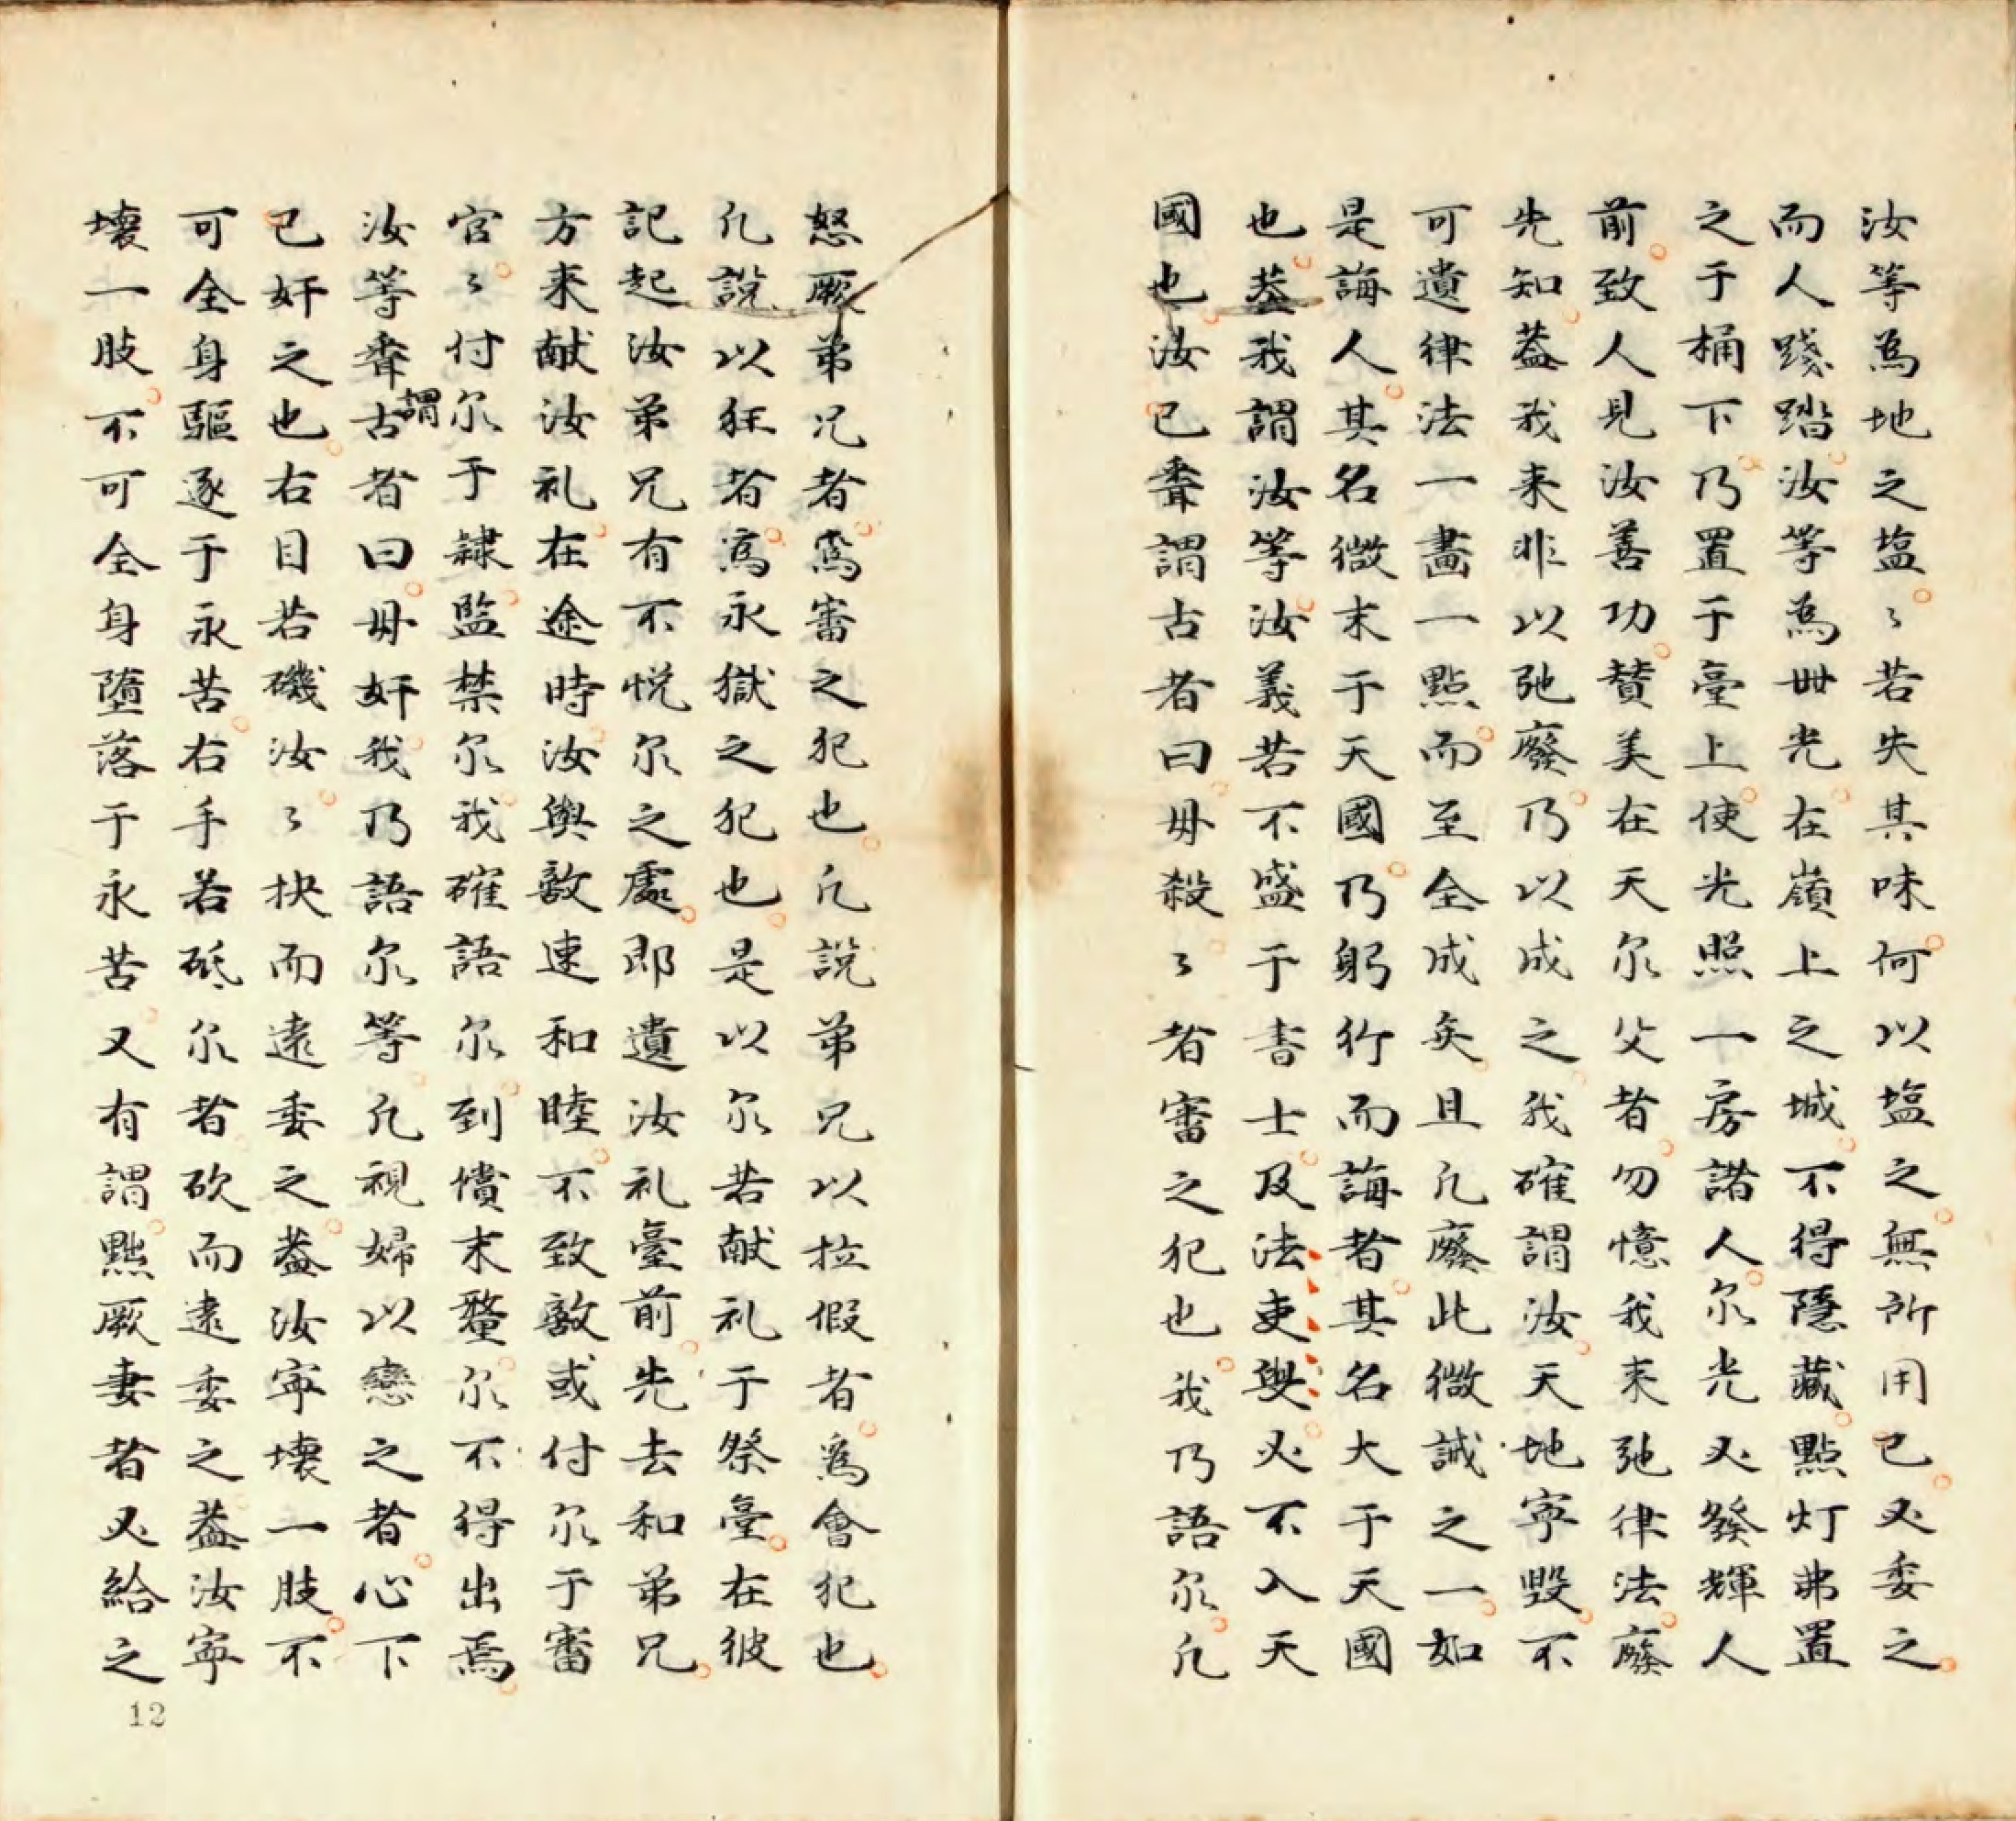 汝等為地之塩。〻若失其味。何以塩之。無所用已。必委之。
而人踐踏。汝等為世光。在嶺上之城。不得隱藏。點灯弗置
之于桶下。乃置于臺上。使光照一房諸人。尔光必發輝人
前。致人見汝善功。賛美在天尔父者。勿憶我来弛律法廢
先知。葢我来非以弛廢。乃以成之。我確謂汝。天地寧毀。不
可遺律法一畵一點。而至全成矣。且凢廢此微誡之一。如
是誨人。其名微末于天國。乃躬行而誨者。其名大于天國
也。葢我謂汝等。汝義若不盛于書士。及法吏與。必不入天
國也。汝已聽謂古者曰。毋殺。〻者審之犯也。我乃語尔。凢
怒厥弟兄者。為審之犯也。凢說弟兄以拉假者。為會犯也。
凢說以狂者。為永獄之犯也。是以尔若献礼于祭臺。在彼
記起汝弟兄有不悦尔之處。即遺汝礼臺前。先去和弟兄。
方来献汝礼。在途時。汝與敵速和睦。不致敵或付尔于審
官。〻付尔于隷。監禁尔。我確語尔。到償末釐。尔不得出焉。
汝等聽謂古者曰。毋奸。我乃語尔等。凢視婦以戀之者。心下
已奸之也。右目若磯汝。〻抉而遠委之。葢汝寧壊一肢。不
可全身驅逐于永苦。右手若砥尔者。砍而遠委之。葢汝寧
壊一肢。不可全身墮落于永苦。又有謂。㸃厥妻者必給之
12